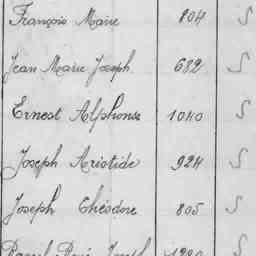 François Marie 804 S
Jean Marie Joseph 682 S
Ernest Alphonse 1040 S
Joseph Aristide 924 S
Joseph Théodore 805 S
Raoul René Joseph